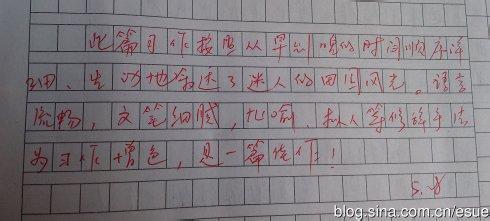 此篇习作按照从早到晚的时间顺序详
细、生动地叙述了迷人的田园风光。语言
流畅，文笔细腻，比喻、拟人等修辞手法
为习作增色，是一篇佳作！
5.8
blog.sina.com.cn/esue